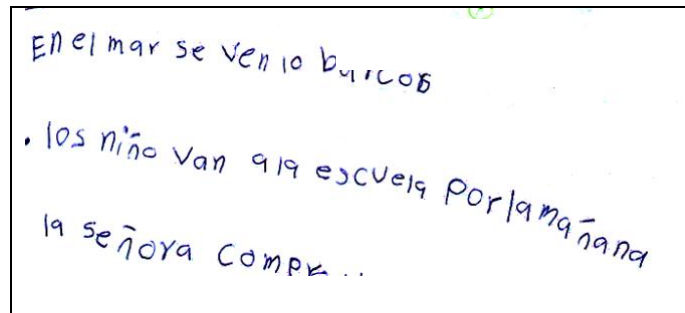 En el mar se ven lo barcos
. los niño van a la escuela Por la mañana
la señora